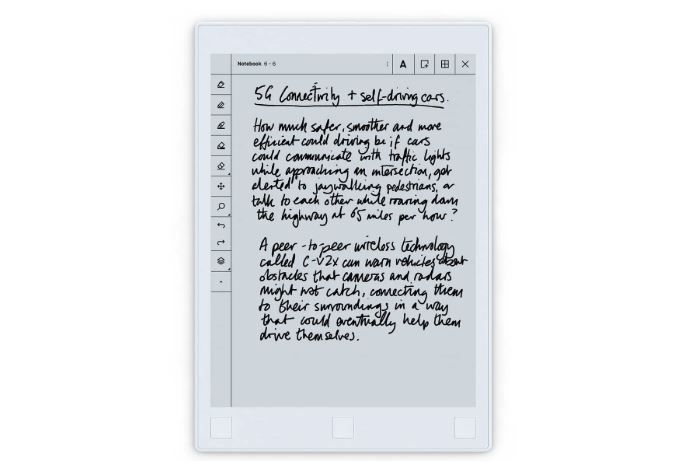 Notebook 6 - 6
A
5G Connectivity + self-driving cars.
How much safer, smoother and more
efficient could driving be if cars
could communicate with traffic lights
while approaching an intersection, got
alerted to jaywalking pedestrians, or
talk to each other while roaring down
the highway at 65 miles per hour?
A peer-to-peer wireless technology
called C-V2x can warn vehicles about
obstacles that cameras and radars
might not catch, connecting them
to their surroundings in a way
that could eventually help them
drive themselves.